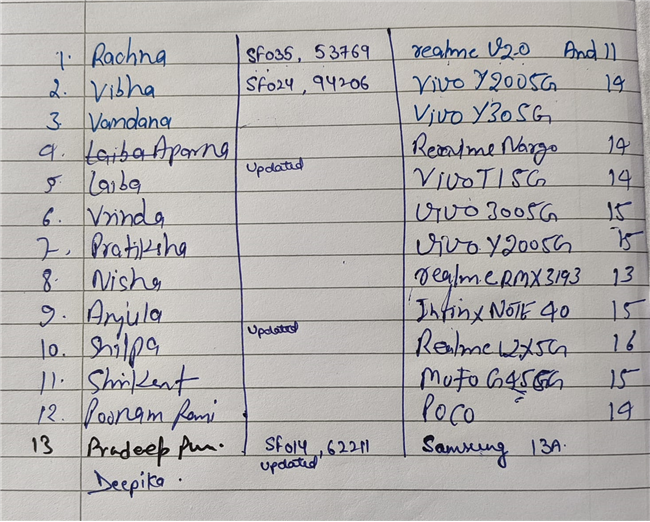 1. Rachna SF035, 53769 realme V20 And 11
2. Vibha SF024, 94206 Vivo Y2005G 14
3. Vandana Vivo Y305G
4. Laiba Aparna Realme Nargo 14
5. Laiba Updated Vivo T15G 14
6. Vrinda Vivo 3005G 15
7. Pratiksha Vivo Y2005G 15
8. Nisha realme RMX3193 13
9. Anjula Infinx NOTE 40 15
10. Shilpa Updated Realme 16
11. Shrikant Moto G455G 15
12. Poonam Rani POCO 14
13 Pradeep SF014, 62211 Samsung 13A.
Updated
Deepika.